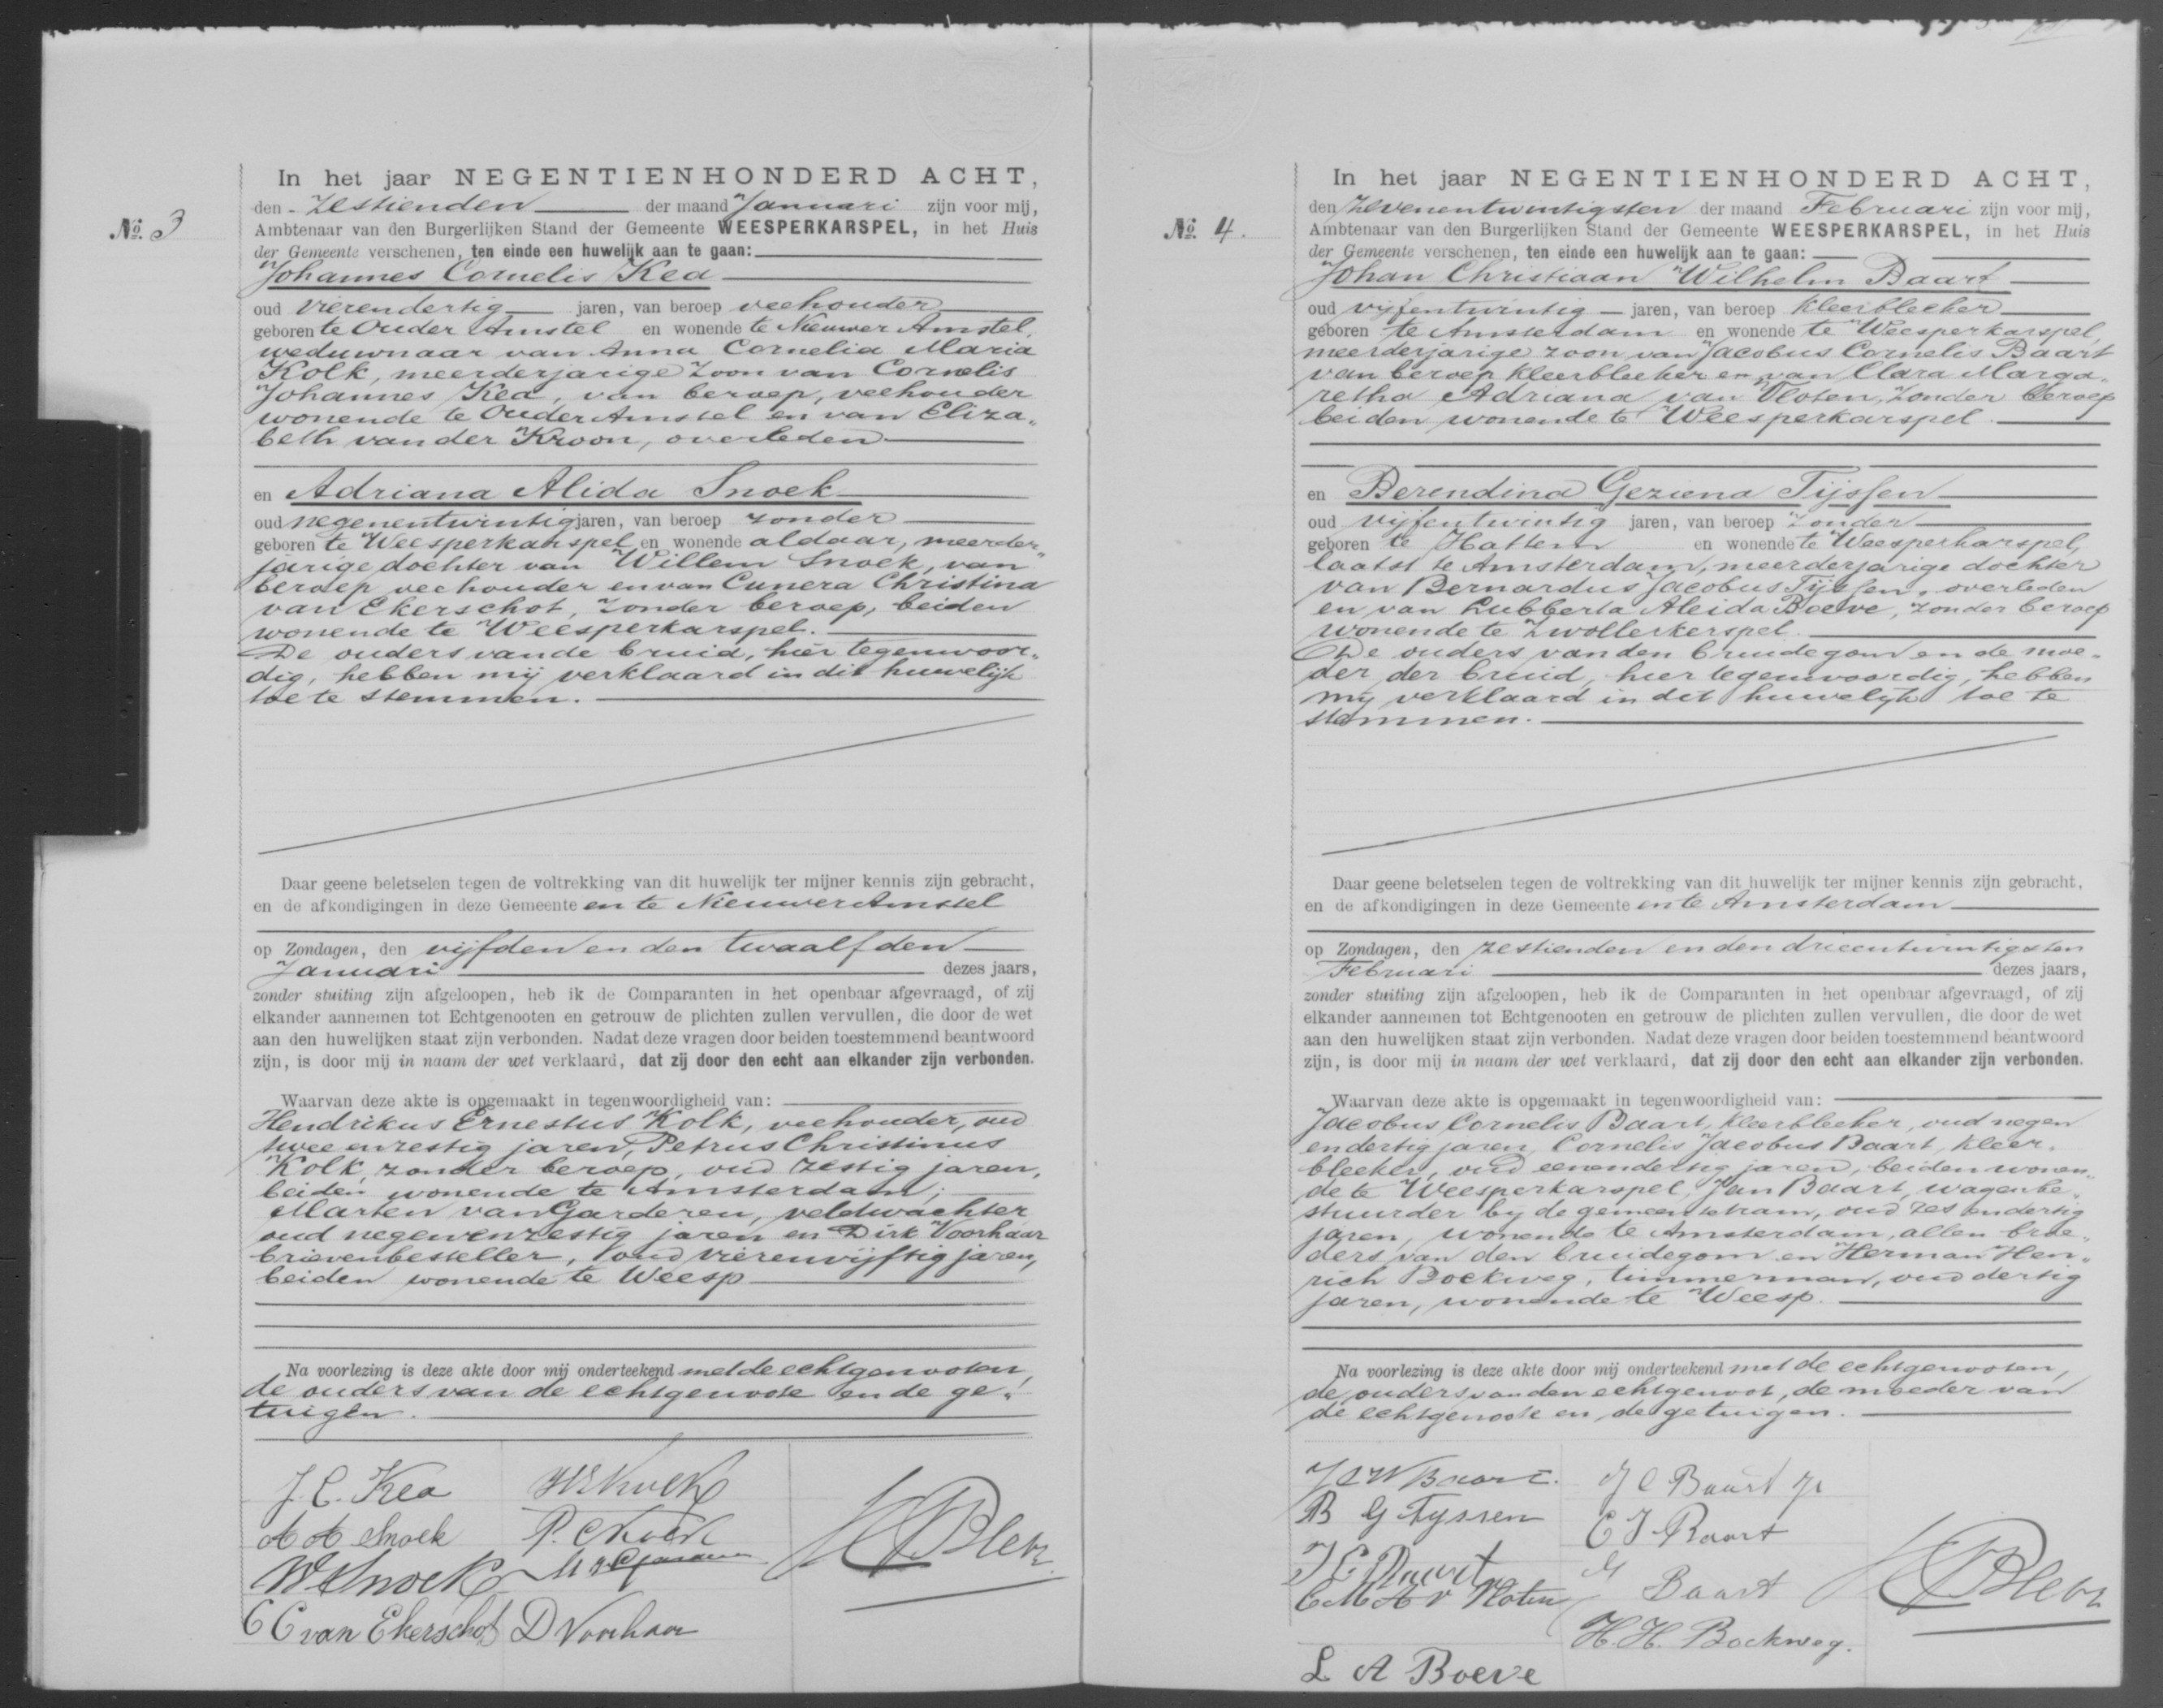 No. 3
In het jaar NEGENTIENHONDERD ACHT,
den zestienden der maand Januari zijn voor mij,
Ambtenaar van den Burgerlijken Stand der Gemeente WEESPERKARSPEL, in het Huis
der Gemeente verschenen, ten einde een huwelijk aan te gaan:
Johannes Cornelis Kea
oud vierendertig jaren, van beroep veehouder
geboren te Ouder Amstel en wonende te Nieuwer Amstel,
weduwnaar van Anna Cornelia Maria
Kolk, meerderjarige zoon van Cornelis
Johannes Kea, van beroep, veehouder
wonende te Ouder Amstel en van Eliza„
beth van der Kroon, overleden
en Adriana Alida Snoek
oud negenentwintig jaren, van beroep zonder
geboren te Weesperkarspel en wonende aldaar, meerder„
jarige dochter van Willem Snoek, van
beroep veehouder en van Cunera Christina
van Ekerschot, zonder beroep, beiden
wonende te Weesperkarspel.
De ouders van de bruid, hier tegenwoor„
dig, hebben mij verklaard in dit huwelijk
toe te stemmen.
Daar geene beletselen tegen de voltrekking van dit huwelijk ter mijner kennis zijn gebracht,
en de afkondigingen in deze Gemeente en te Nieuwer Amstel
op Zondagen, den vijfden en den twaalfden
Januari dezes jaars,
zonder stuiting zijn afgeloopen, heb ik de Comparanten in het openbaar afgevraagd, of zij
elkander aannemen tot Echtgenooten en getrouw de plichten zullen vervullen, die door de wet
aan den huwelijken staat zijn verbonden. Nadat deze vragen door beiden toestemmend beantwoord
zijn, is door mij in naam der wet verklaard, dat zij door den echt aan elkander zijn verbonden.
Waarvan deze akte is opgemaakt in tegenwoordigheid van:
Hendrikus Ernestus Kolk, veehouder, oud
twee en zestig jaren, Petrus Christinus
Kolk, zonder beroep, oud zestig jaren,
beiden wonende te Amsterdam;
Marten van Garderen, veldwachter
oud negenenzestig jaren en Dirk Voorhaar
brievenbesteller, oud vierenvijftig jaren,
beiden wonende te Weesp
Na voorlezing is deze akte door mij onderteekend met de echtgenooten,
de ouders van de echtgenoote en de ge„
tuigen.
J. C. Kea
A A Snoek
W Snoek
C C van Ekerschot
D Voorhaar
No. 4.
In het jaar NEGENTIENHONDERD ACHT,
den zevenentwintigsten der maand Februari zijn voor mij,
Ambtenaar van den Burgerlijken Stand der Gemeente WEESPERKARSPEL, in het Huis
der Gemeente verschenen, ten einde een huwelijk aan te gaan:
Johan Christiaan Wilhelm Baart
oud vijfentwintig jaren, van beroep kleerbleeker
geboren te Amsterdam en wonende te Weesperkarspel,
meerderjarige zoon van Jacobus Cornelis Baart
van beroep kleerbleeker en van Clara Marga„
retha Adriana van Vloten, zonder beroep
beiden wonende te Weesperkarspel.
en Berendina Geziena Tijssen
oud vijfentwintig jaren, van beroep zonder
geboren te Hattem en wonende te Weesperkarspel,
laatst te Amsterdam, meerderjarige dochter
van Bernardus Jacobus Tijssen, overleden
en van Lubberta Aleida Boeve, zonder beroep
wonende te Zwollerkerspel.
De ouders van den bruidegom en de moe„
der der bruid, hier tegenwoordig, hebben
mij verklaard in dit huwelijk toe te
stemmen.
Daar geene beletselen tegen de voltrekking van dit huwelijk ter mijner kennis zijn gebracht,
en de afkondigingen in deze Gemeente en te Amsterdam
op Zondagen, den zestienden en den drieentwintigsten
Februari dezes jaars,
zonder stuiting zijn afgeloopen, heb ik de Comparanten in het openbaar afgevraagd, of zij
elkander aannemen tot Echtgenooten en getrouw de plichten zullen vervullen, die door de wet
aan den huwelijken staat zijn verbonden. Nadat deze vragen door beiden toestemmend beantwoord
zijn, is door mij in naam der wet verklaard, dat zij door den echt aan elkander zijn verbonden.
Waarvan deze akte is opgemaakt in tegenwoordigheid van:
Jacobus Cornelis Baart, kleerbleeker, oud negen
endertig jaren, Cornelis Jacobus Baart, kleer„
bleeker, oud eenendertig jaren, beiden wonen„
de te Weesperkarspel, Jan Baart, wagenbe„
stuurder bij de gemeentetram, oud zesendertig
jaren, wonende te Amsterdam, allen broe„
ders van den bruidegom en Herman Hen„
rich Bockweg, timmerman, oud dertig
jaren, wonende te Weesp.
Na voorlezing is deze akte door mij onderteekend met de echtgenooten,
de ouders van den echtgenoot, de moeder van
de echtgenoote en de getuigen.
J C W Baart.
J C Baart Jr
B G Tyssen
C J Baart
C M A v Vloten
Baart
H. H. Bockweg.
L A Boeve